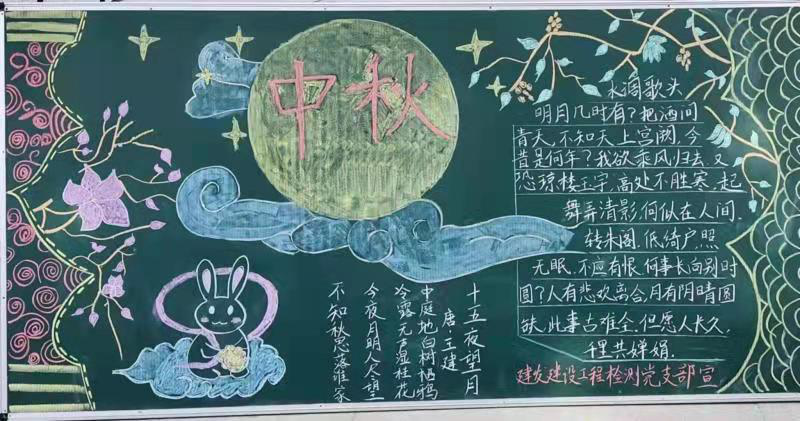 中秋
水调歌头
明月几时有？把酒问
青天，不知天上宫阙，今
昔是何年？我欲乘风归去，又
恐琼楼玉宇，高处不胜寒，起
舞弄清影，何似在人间．
转朱阁，低绮户，照
无眠．不应有恨，何事长向别时
圆？人有悲欢离合，月有阴晴圆
缺，此事古难全，但愿人长久，
千里共婵娟．
建发建设工程检测党支部宣
十五夜望月
唐 王建
中庭地白树栖鸦
冷露无声湿桂花
今夜月明人尽望
不知秋思落谁家